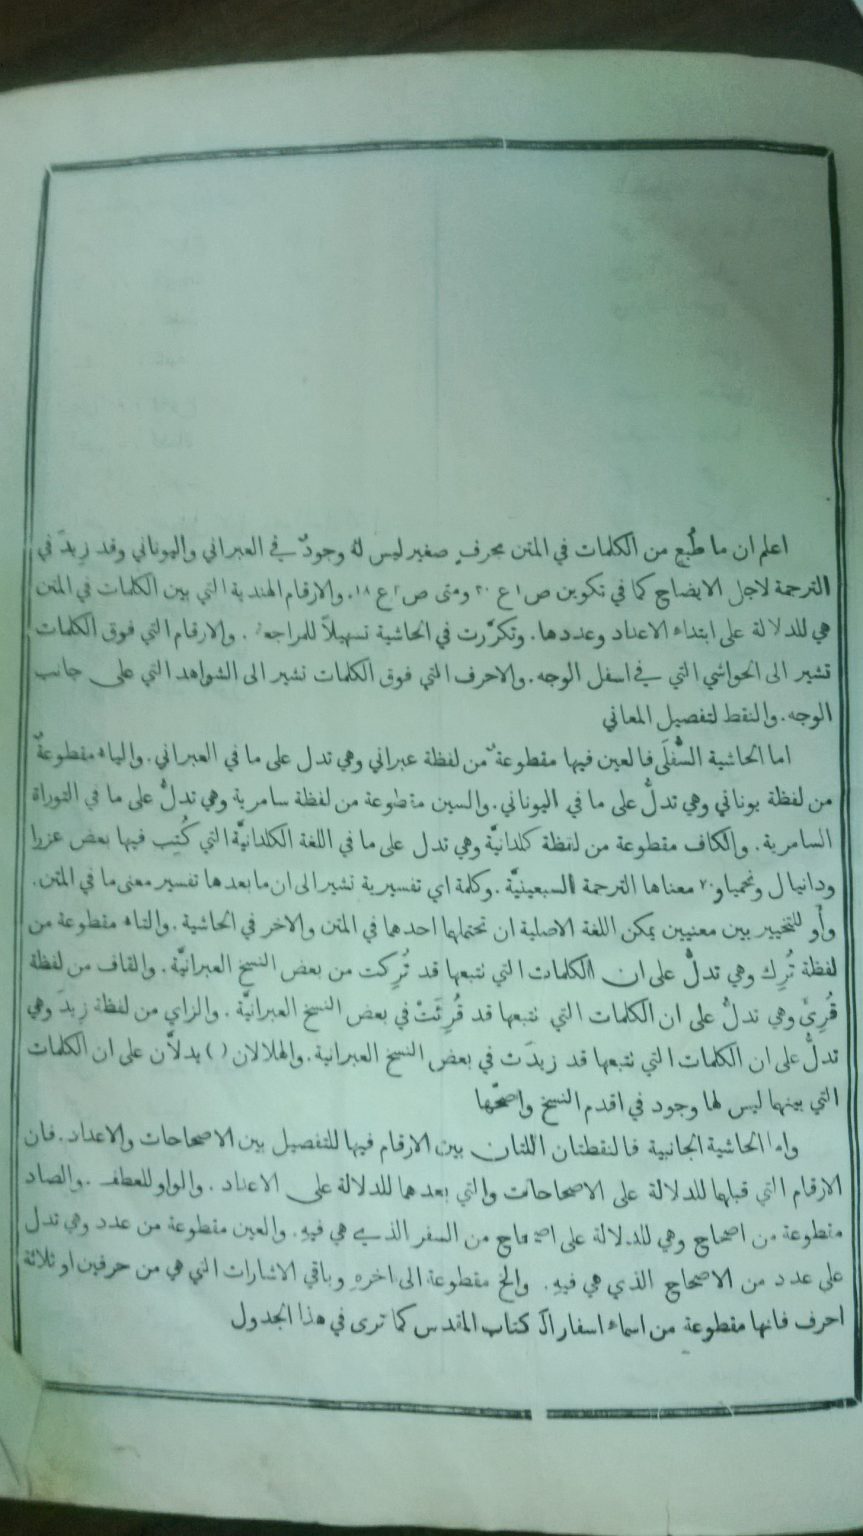 اعلم ان ما طُبع من الكلمات في المتن بحرفٍ صغير ليس لهُ وجودٌ في العبراني واليوناني وقد زيدَ في
الترجمة لاجل الايضاح كما في تكوين ص١ ع ٣٠ ومتى ص٢ ع ١٨. والارقام الهندية التي بين الكلمات في المتن
هي للدلالة على ابتداء الاعداد وعددها. وتكرَّرت في الحاشية تسهيلاً للمراجعة. والارقام التي فوق الكلمات
تشير الى الحواشي التي في اسفل الوجه. والاحرف التي فوق الكلمات تشير الى الشواهد التي على جانب
الوجه. والنقط لتفصيل المعاني
اما الحاشية السُّفلَى فالعين فيها مقطوعةٌ من لفظة عبراني وهي تدل على ما في العبراني. والياء مقطوعةٌ
من لفظة يوناني وهي تدلُّ على ما في اليوناني. والسين مقطوعة من لفظة سامرية وهي تدلُّ على ما في التوراة
السامرية. والكاف مقطوعة من لفظة كلدانيَّة وهي تدل على ما في اللغة الكلدانيَّة التي كُتِب فيها بعض عزرا
ودانيال ونحميا و٧٠ معناها الترجمة السبعينيَّة. وكلمة اي تفسيرية تشير الى ان ما بعدها تفسير معنى ما في المتن.
وأَو للتخيير بين معنيين يمكن اللغة الاصلية ان تحتملها احدهما في المتن والاخر في الحاشية. والتاء مقطوعة من
لفظة تُرِك وهي تدلُّ على ان الكلمات التي نتبعها قد تُرِكت من بعض النسخ العبرانيَّة. والقاف من لفظة
قُرِئَ وهي تدلُّ على ان الكلمات التي نتبعها قد قُرِئَتْ في بعض النسخ العبرانيَّة. والزاي من لفظة زيدَ وهي
تدلُّ على ان الكلمات التي نتبعها قد زيدَت في بعض النسخ العبرانية. والهلالان ( ) يدلاَّن على ان الكلمات
التي بينهما ليس لها وجود في اقدم النسخ واصحّها
واما الحاشية الجانبية فالنقطتان اللتان بين الارقام فيها للتفصيل بين الاصحاحات والاعداد. فان
الارقام التي قبلهما للدلالة على الاصحاحات والتي بعدهما للدلالة على الاعداد. والواو للعطف. والصاد
مقطوعة من اصحاح وهي للدلالة على اصحاح من السفر الذي هي فيهِ. والعين مقطوعة من عدد وهي تدل
على عدد من الاصحاح الذي هي فيهِ. والخ مقطوعة الى اخرهِ وباقي الاشارات التي هي من حرفين او ثلاثة
احرف فانها مقطوعة من اسماء اسفار الكتاب المقدس كما ترى في هذا الجدول